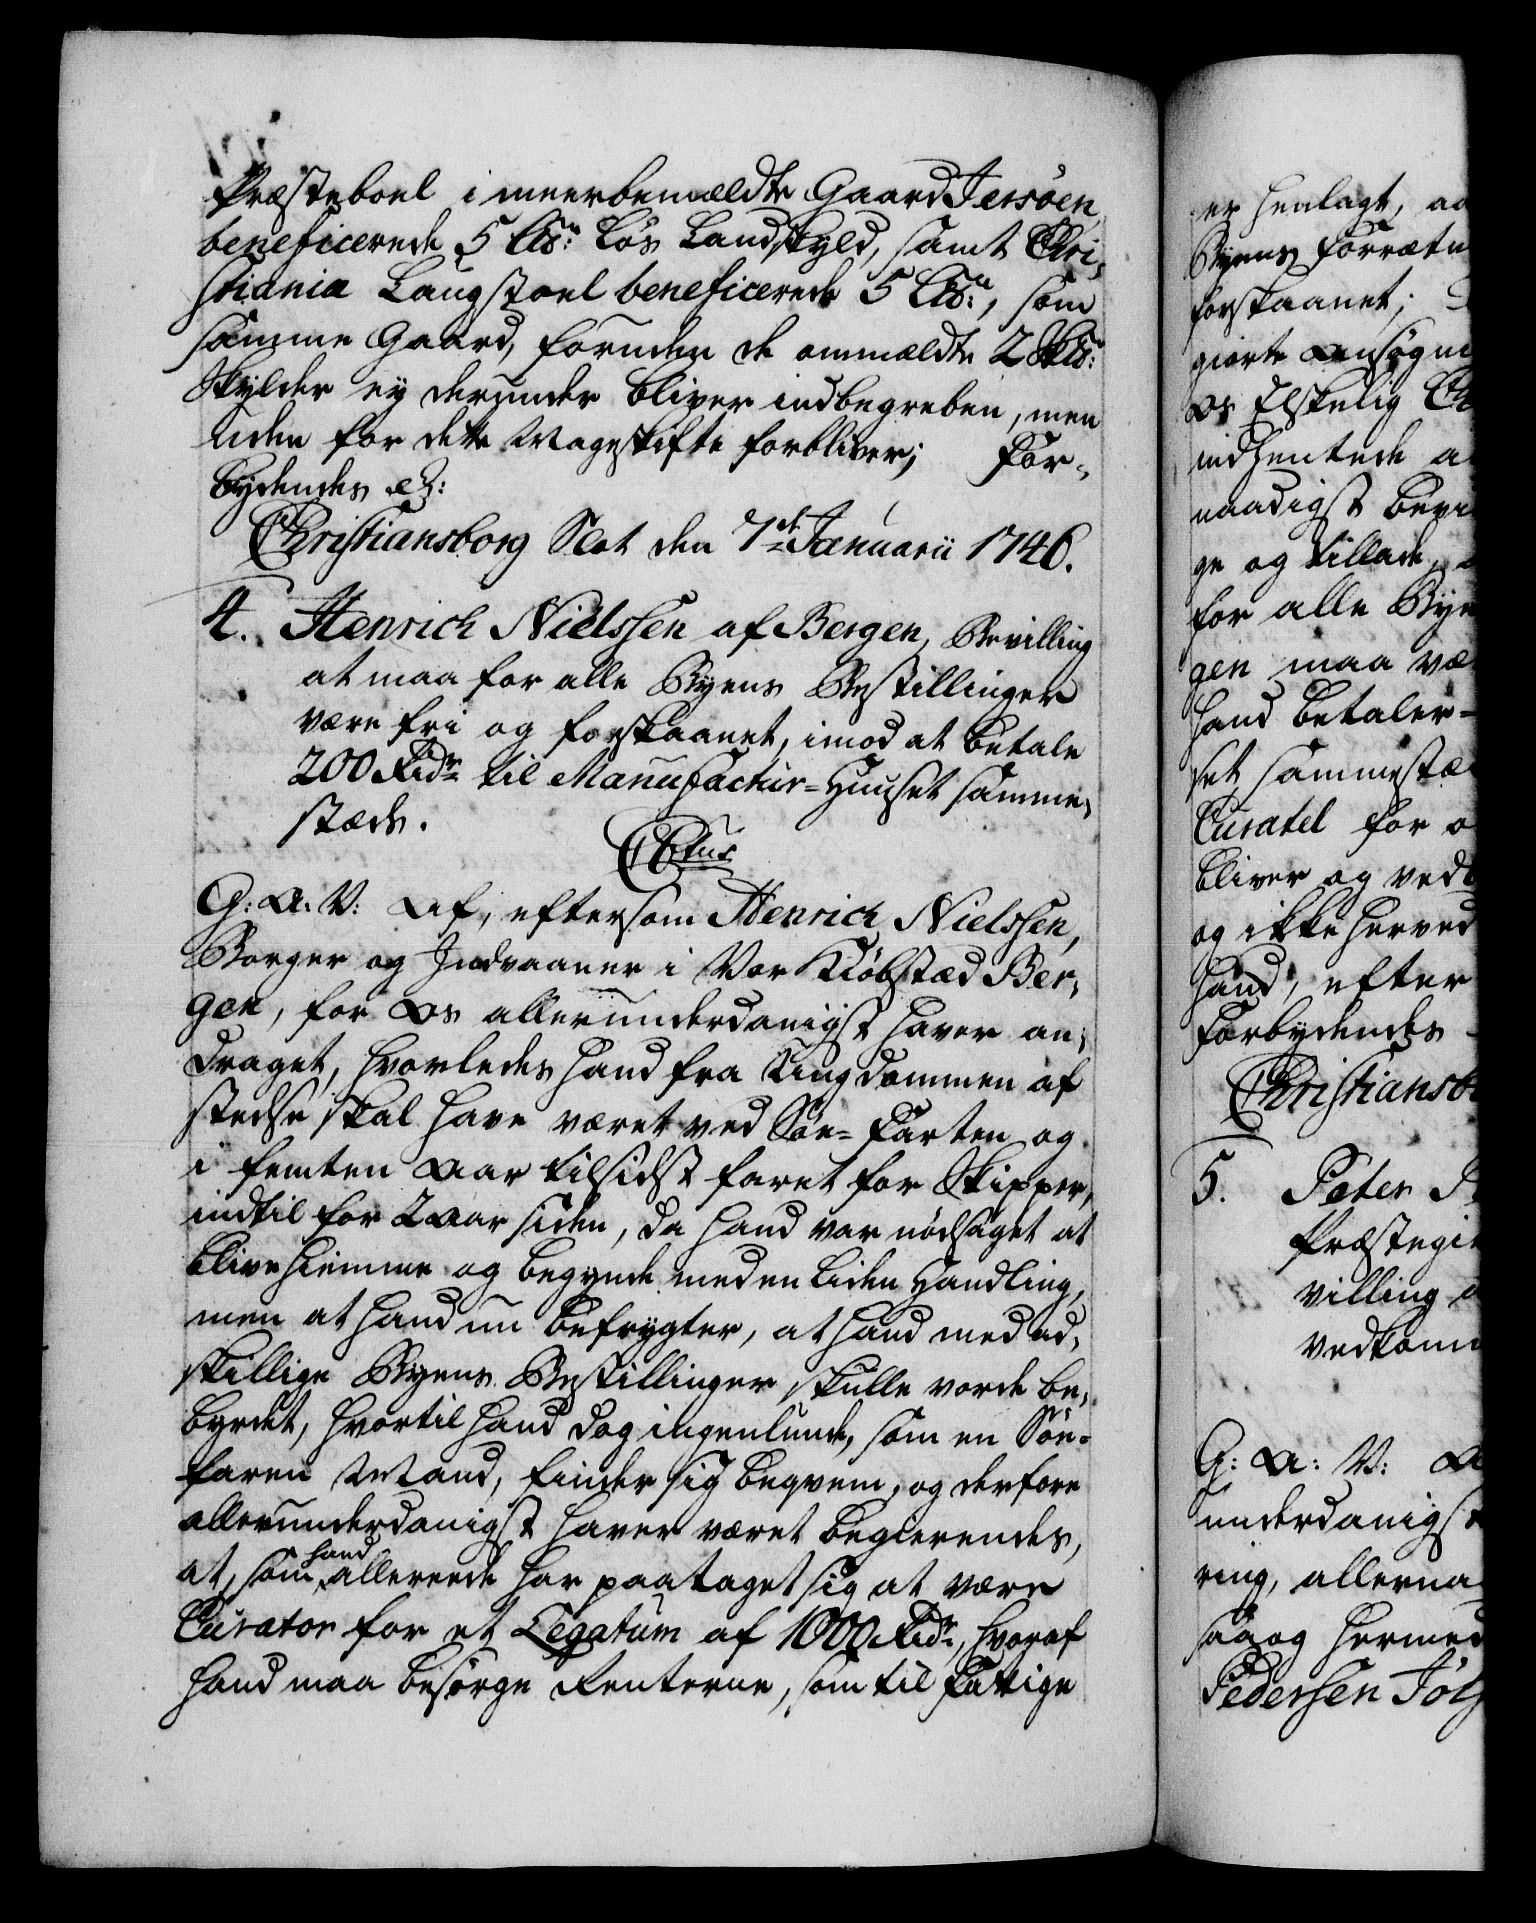 Præsteboel i meerbemældte Gaard Jersöen
beneficerede 5 L℔: Løs Landskyld, samt Chri-
stiania Laugstoel beneficerede 5 L℔:, som
samme Gaard, foruden de ommældte 2
Skylder ey derunder bliver indbegreben, men
uden for dette Mageskifte forbliver; For-
bydendes &:
Christiansborg Slot den 7de Januarii 1746.
4. Henrich Nielssen af Bergen, Bevilling
at maa for alle Byens Bestillinger
være fri og forskaanet, imod at betale
200 Rdr til Manufactur-Huuset samme-
stæds.
G: A: V: at, eftersom Henrich Nielssen,
Borger og Indvaaner i Vor Kiøbstæd Ber-
gen, for Os allerunderdanigst haver an-
draget, hvorledes hand fra Ungdommen af
stedse skal have været ved Søe-Farten og
i femten Aar tilsidst faret for Skipper,
indtil for 2 Aar siden, da hand var nødsaget at
blive hiemme og begynde med en liden Handling,
men at hand nu befrygter, at hand med ad-
skillige Byens Bestillinger skulle vorde be-
byrdet, hvortil hand dog ingenlunde, som en Søe-
faren Mand, finder sig beqvem, og derfore
allerunderdanigst haver været begierendes,
at, som hand allerede har paataget sig at være
Curator for et Legatum af 1000 Rdr, hvoraf
hand maa besørge Renterne, som til Fattige
er henlagt, aa
Byens Forretn
forskaanet;
giorte Ansøgni
Os Elskelig Ch
indhentede
naadigst bevi
ge og tillade,
for alle Bye
gen maa væ
hand betaler
set sammestæ
Curatel for
bliver og ved
og ikke herved
hand, efter
Forbydendes
Christiansb
5. Peter
Præstegie
villing
vedkom
G: A: V:
underdanigst
ring, allerna
saa og hermed
Pedersen